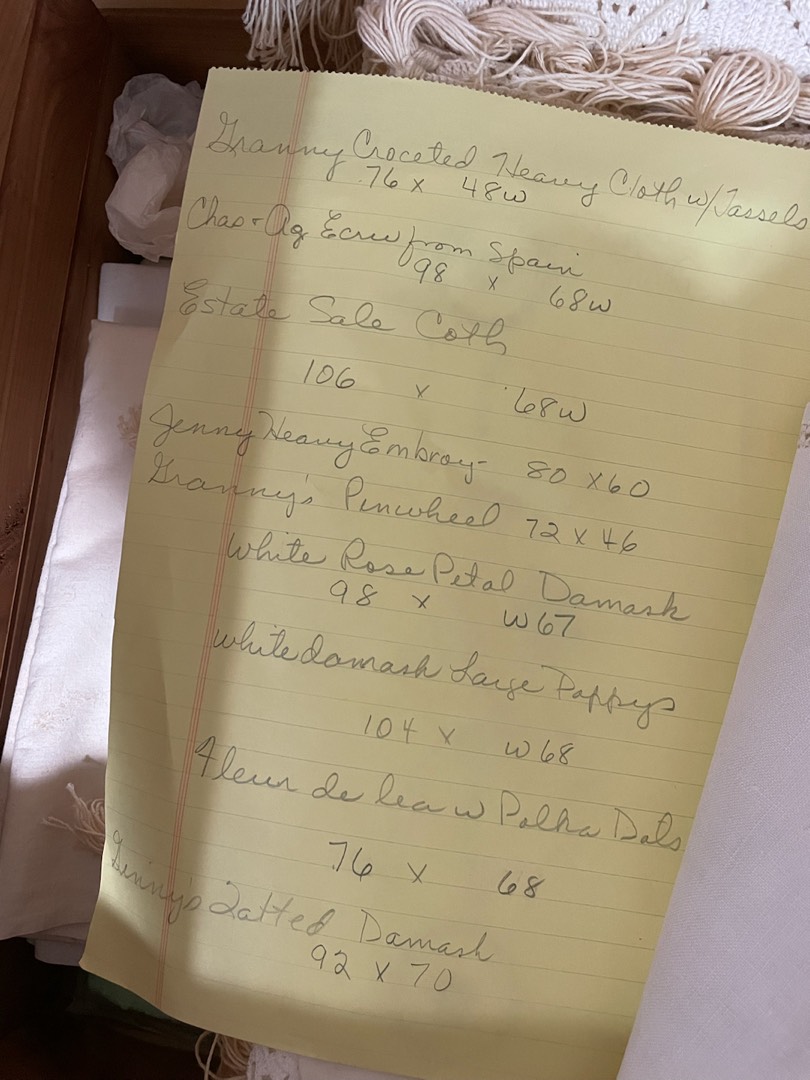 Granny Croceted Heavy Cloth w/Tassels
76 x 48w
Chas + Ag Ecru from Spain
98 x 68w
Estate Sale Coth
106 x 68w
Jenny Heavy Embroy- 80 x 60
Granny's Pinwheel 72 x 46
White Rose Petal Damask
98 x w67
white damask Large Poppys
104 x w68
Fleur de lea w Polka Dots
76 x 68
Ginny's Tatted Damask
92 x 70